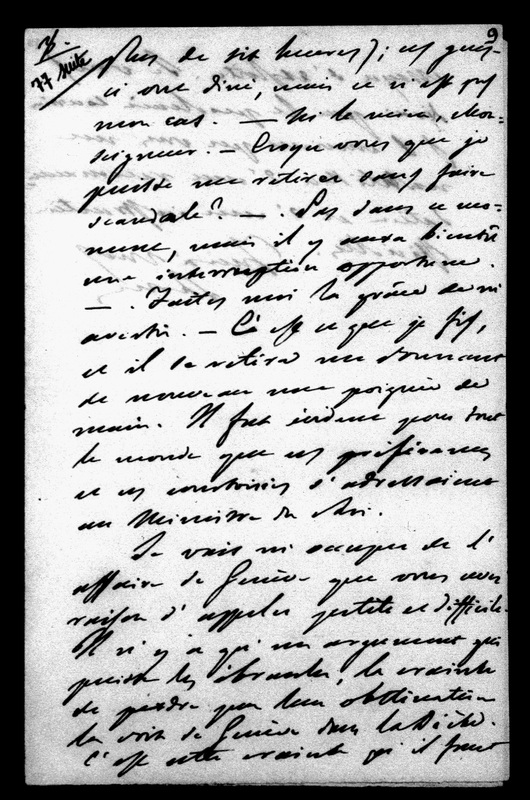 9
77 suite
plus de six heures); ces gens-
ci ont diné, mais ce n'est pas
mon cas. — Ni le mien, Mon-
seigneur. — Croyez vous que je
puisse me retirer sans faire
scandale? — Pas dans ce mo-
ment, mais il y aura bientôt
une interruption opportune.
— Faites moi la grâce de m'
avertir. — C'est ce que je fis,
et il se retira me donnant
de nouveau une poignée de
main. Il fut évident pour tout
le monde que ces préférences
et ces courtoisies s'adressaient
au Ministre du Roi.
Je vais m'occuper de l'
affaire de Genève que vous avez
raison d'appeler petite et difficile.
Il n'y a qu'un argument qui
puisse les ébranler, la crainte
de perdre par leur obstination
la voix de Genève dans la Diète.
C'est cette crainte qu'il faut